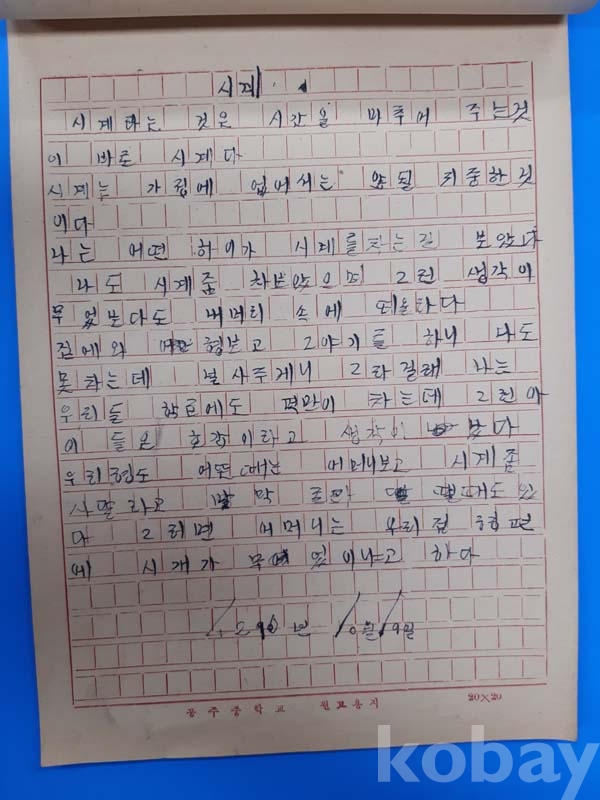 시계
시계라는 것은 시간을 마추어 주는것
이 바로 시계다
시계는 가정에 없어서는 않될 귀중한것
이다
나는 어떤 하이가 시계를 차는걸 보았다
나도 시계좀 차보았으며 그런 생각이
무엇보다도 내머리 속에 떠올라다
집에와 형보고 그야기를 하니 나도
못차는데 널사주게니 그라길래 나는
우리들 학교에도 몇만이 차는데 그런아
이들은 호강이라고 생각이 난다
우리형도 어떤때는 어머니보고 시계좀
사달라고 막 때도있
다 그러면 어머니는 우리집 형편
에 시개가 무 있이냐고 하다
년 10월 19일
공주중학교 원고용지 20×20
kobay